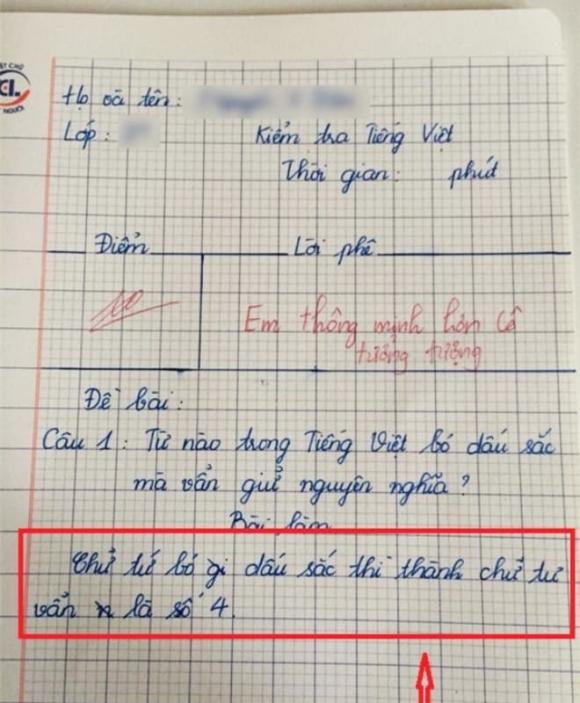 Họ và tên:
Lớp:
Kiểm tra Tiếng Việt
Thời gian: phút
Điểm
Lời phê
10
Em thông minh hơn Cô
tưởng tượng
Đề bài:
Câu 1: Từ nào trong Tiếng Việt bỏ dấu sắc
mà vẫn giữ nguyên nghĩa?
Bài làm
Chữ tứ bỏ gi dấu sắc thì thành chữ tư
vẫn là số 4.